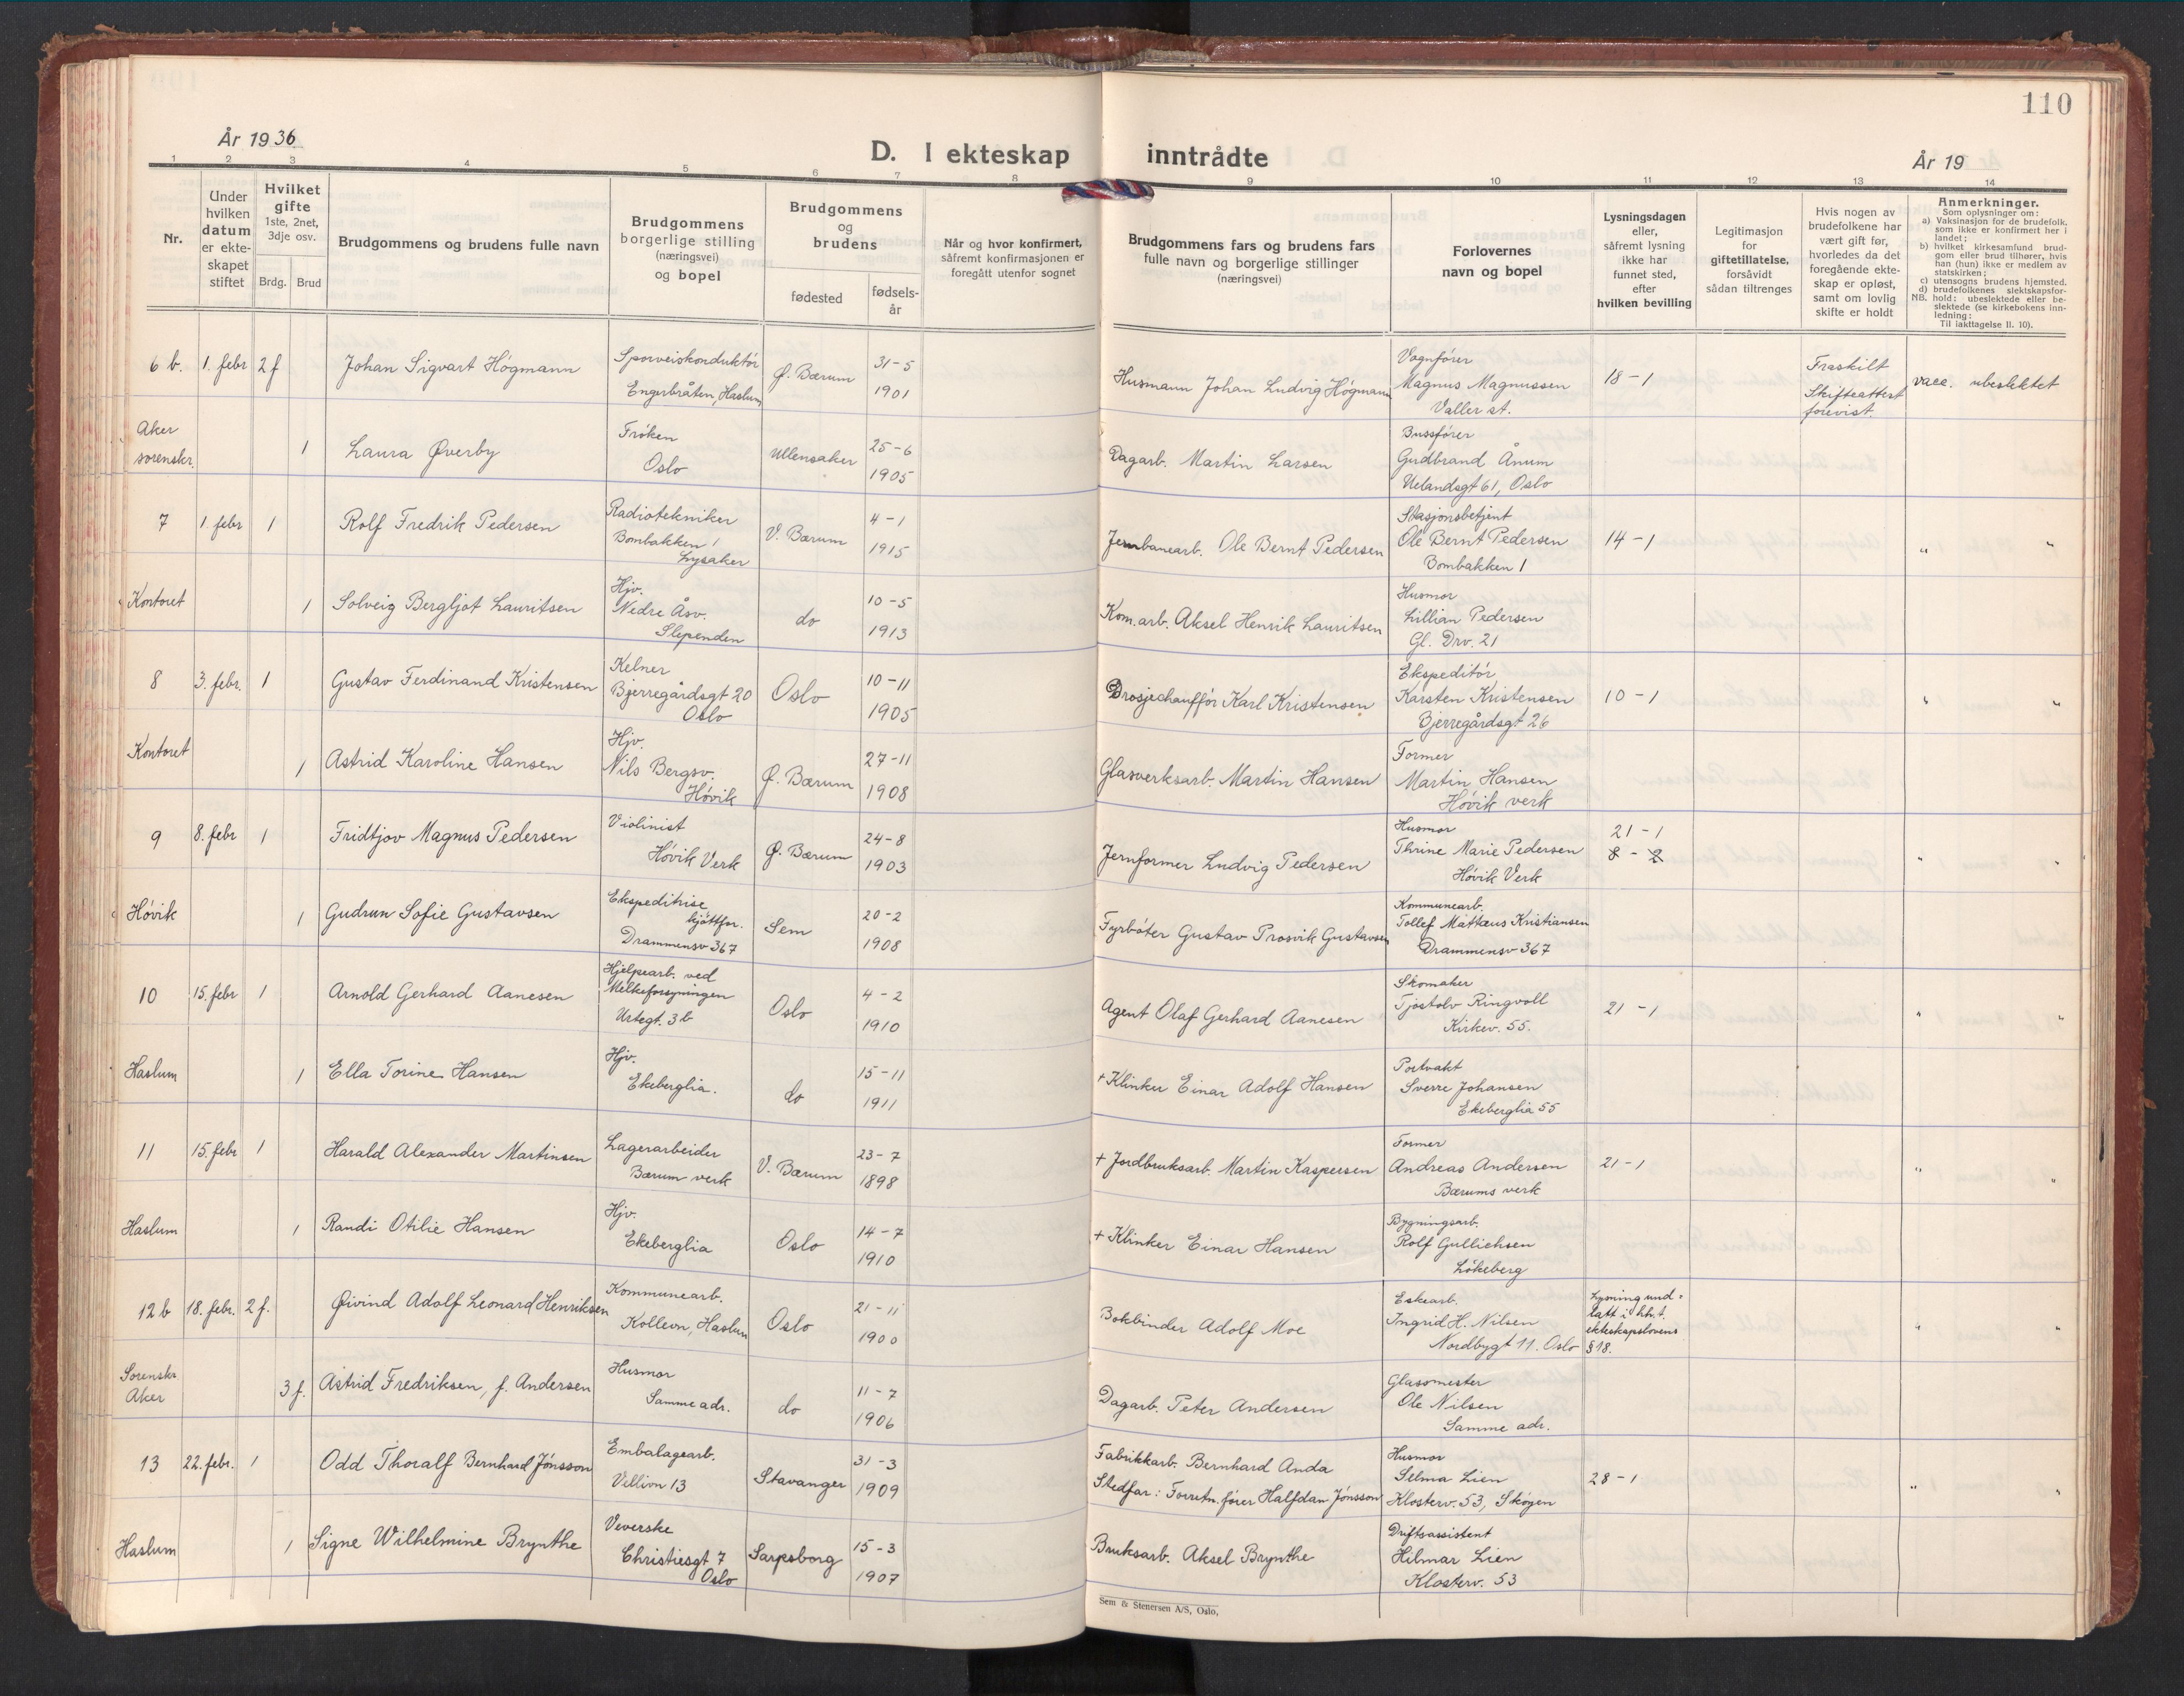 110
År 1936
D. I ekteskap inntrådte
År 19
1 2 3 4 5 6 7 8 9 10 11 12 13 14
Nr.
Under
hvilken
datum
er ekte-
skapet
stiftet
Hvilket
gifte
1ste, 2net,
3dje osv.
Brdg. Brud
Brudgommens og brudens fulle navn
Brudgommens
borgerlige stilling
(næringsvei)
og bopel
Brudgommens
og
brudens
fødested
fødsels-
år
Når og hvor konfirmert,
såfremt konfirmasjonen er
foregått utenfor sognet
Brudgommens fars og brudens fars
fulle navn og borgerlige stillinger
(næringsvei)
Forlovernes
navn og bopel
Lysningsdagen
eller,
såfremt lysning
ikke har
funnet sted,
efter
hvilken bevilling
Legitimasjon
for
giftetillatelse,
forsåvidt
sådan tiltrenges
Hvis nogen av
brudefolkene har
vært gift før,
hvorledes da det
foregående ekte-
skap er opløst,
samt om lovlig
skifte er holdt
Anmerkninger.
Som oplysninger om:
a) Vaksinasjon for de brudefolk,
som ikke er konfirmert her i
landet;
b) hvilket kirkesamfund brud-
gom eller brud tilhører, hvis
han (hun) ikke er medlem av
statskirken;
c) utensogns brudens hjemsted.
d) brudefolkenes slektskapsfor-
NB. hold: ubeslektede eller be-
slektede (se kirkebokens inn-
ledning:
Til iakttagelse II. 10).
6 b. 1. febr 2 f Johan Sigvart Högmann
Sporveiskonduktör
Engerbråten, Haslum
Ø. Bærum
31-5
1901
Husmann Johan Ludvig Högmann
Vognfører
Magnus Magnussen
Valler st.
18-1
Fraskilt
Skifteattest
forevist.
vacc. ubeslektet
Aker
sorenskr.
1 Laura Øverby
Frøken
Oslo
Ullensaker
25-6
1905
Dagarb. Martin Larsen
Bussfører
Gudbrand Ånum
Uelandsgt 61, Oslo
7 1. febr 1 Rolf Fredrik Pedersen
Radiotekniker
Bombakken 1
Lysaker
V. Bærum
4-1
1915
Jernbanearb. Ole Bernt Pedersen
Stasjonsbetjent
Ole Bernt Pedersen
Bombakken 1
14-1 " "
Kontoret 1 Solveig Bergljot Lauritsen
Hjv.
Nedre Åsv.
Slependen
do
10-5
1913
Kom.arb. Aksel Henrik Lauritsen
Husmor
Lillian Pedersen
Gl. Drv. 21
8 3. febr. 1 Gustav Ferdinand Kristensen
Kelner
Bjerregårdsgt 20
Oslo
Oslo
10-11
1905
Drosjechauffør Karl Kristensen
Ekspeditör
Karsten Kristensen
Bjerregårdsgt 26
10-1 " "
Kontoret 1 Astrid Karoline Hansen
Hjv.
Nils Bergsv.
Hövik
Ø. Bærum
27-11
1908
Glasverksarb. Martin Hansen
Former
Martin Hansen
Hövik verk
9 8. febr 1 Fridtjov Magnus Pedersen
Violinist
Hövik Verk
Ø. Bærum
24-8
1903
Jernformer Ludvig Pedersen
Husmor
Thrine Marie Pedersen
Hövik Verk
21-1
8-2 " "
Hövik 1 Gudrun Sofie Gustavsen
Ekspeditrise
kjöttfor.
Drammensv 367
Sem
20-2
1908
Fyrböter Gustav Prosvik Gustavsen
Kommunearb.
Tollef Mattæus Kristiansen
Drammensv 367
10 15. febr 1 Arnold Gerhard Aanesen
Hjelpearb. ved
Melkeforsyningen
Urtegt. 3b
Oslo
4-2
1910
Agent Olaf Gerhard Aanesen
Skomaker
Tjostolv Ringvoll
Kirkev. 55.
21-1 " "
Haslum 1 Ella Torine Hansen
Hjv.
Ekeberglia.
do
15-11
1911
+ Klinker Einar Adolf Hansen
Portvakt
Sverre Johansen
Ekeberglia 55
11 15. febr 1 Harald Alexander Martinsen
Lagerarbeider
Bærum verk
V. Bærum
23-7
1898
+ Jordbruksarb. Martin Kaspersen
Former
Andreas Andersen
Bærums verk
21-1 " "
Haslum 1 Randi Otilie Hansen
Hjv.
Ekeberglia
Oslo
14-7
1910
+ Klinker Einar Hansen
Bygningsarb.
Rolf Gullichsen
Lökeberg
12 b 18. febr. 2 f. Øivind Adolf Leonard Henriksen
Kommunearb.
Kollevn, Haslum
Oslo
21-11
1900
Bokbinder Adolf Moe
Eskearb.
Ingrid H. Nilsen
Nordbygt 11. Oslo
Lysning und-
latt i hht.
ekteskapslovens
§ 18. " "
Sorenskr.
Aker
3 f. Astrid Fredriksen, f. Andersen
Husmor
Samme adr.
do
11-7
1906
Dagarb. Peter Andersen
Glassmester
Ole Nilsen
Samme adr.
13 22. febr. 1 Odd Thoralf Bernhard Jönsson
Embalagearb.
Villivn 13
Stavanger
31-3
1909
Fabrikkarb. Bernhard Anda
Stedfar: Forretn.fører Halfdan Jönsson
Husmor
Selma Lien
Klosterv. 53, Sköyen
28-1 " "
Haslum 1 Signe Wilhelmine Brynthe
Veverske
Christiesgt 7
Oslo
Sarpsborg
15-3
1907
Bruksarb. Aksel Brynthe
Driftsassistent
Hilmar Lien
Klosterv. 53
Sem & Stenersen A/S, Oslo,